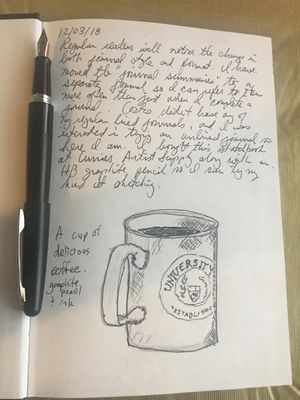 12/03/18
Regular readers will notice the change in
both journal style and format. I have
moved the "journal summaries" to a
separate journal so I can refer to them
more often than just when I complete a
journal. Costco didn't have any of
my regular lined journals, and I was
interested in trying an unlined journal so
here I am. I bought this sketchbook
at Curries Artist Supply along with an
HB graphite pencil so I can try my
hand at sketching.
A cup of
delicious
coffee.
graphite
pencil
+ ink
UNIVERSITY
ESTABLISHED